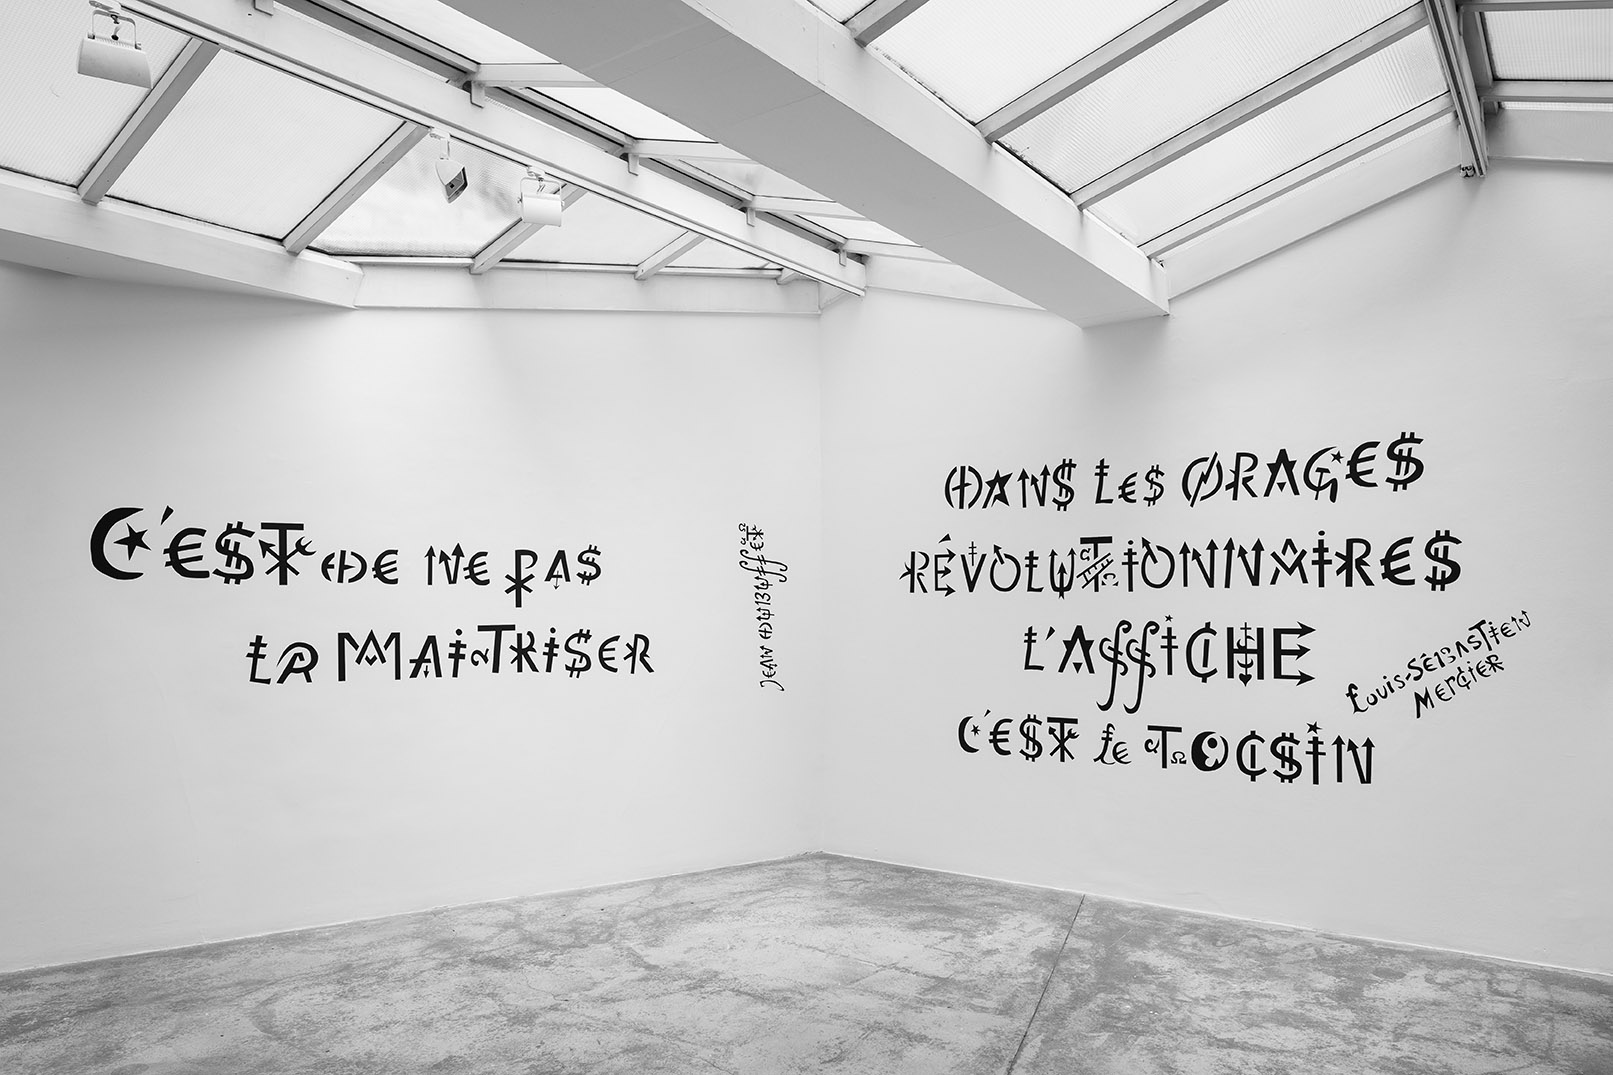 C'EST DE NE PAS
LA MAITRISER
JEAN DUBUFFET
DANS LES ORAGES
RÉVOLUTIONNAIRES
L'AFFICHE
C'EST LE TOCSIN
LOUIS-SÉBASTIEN
MERCIER